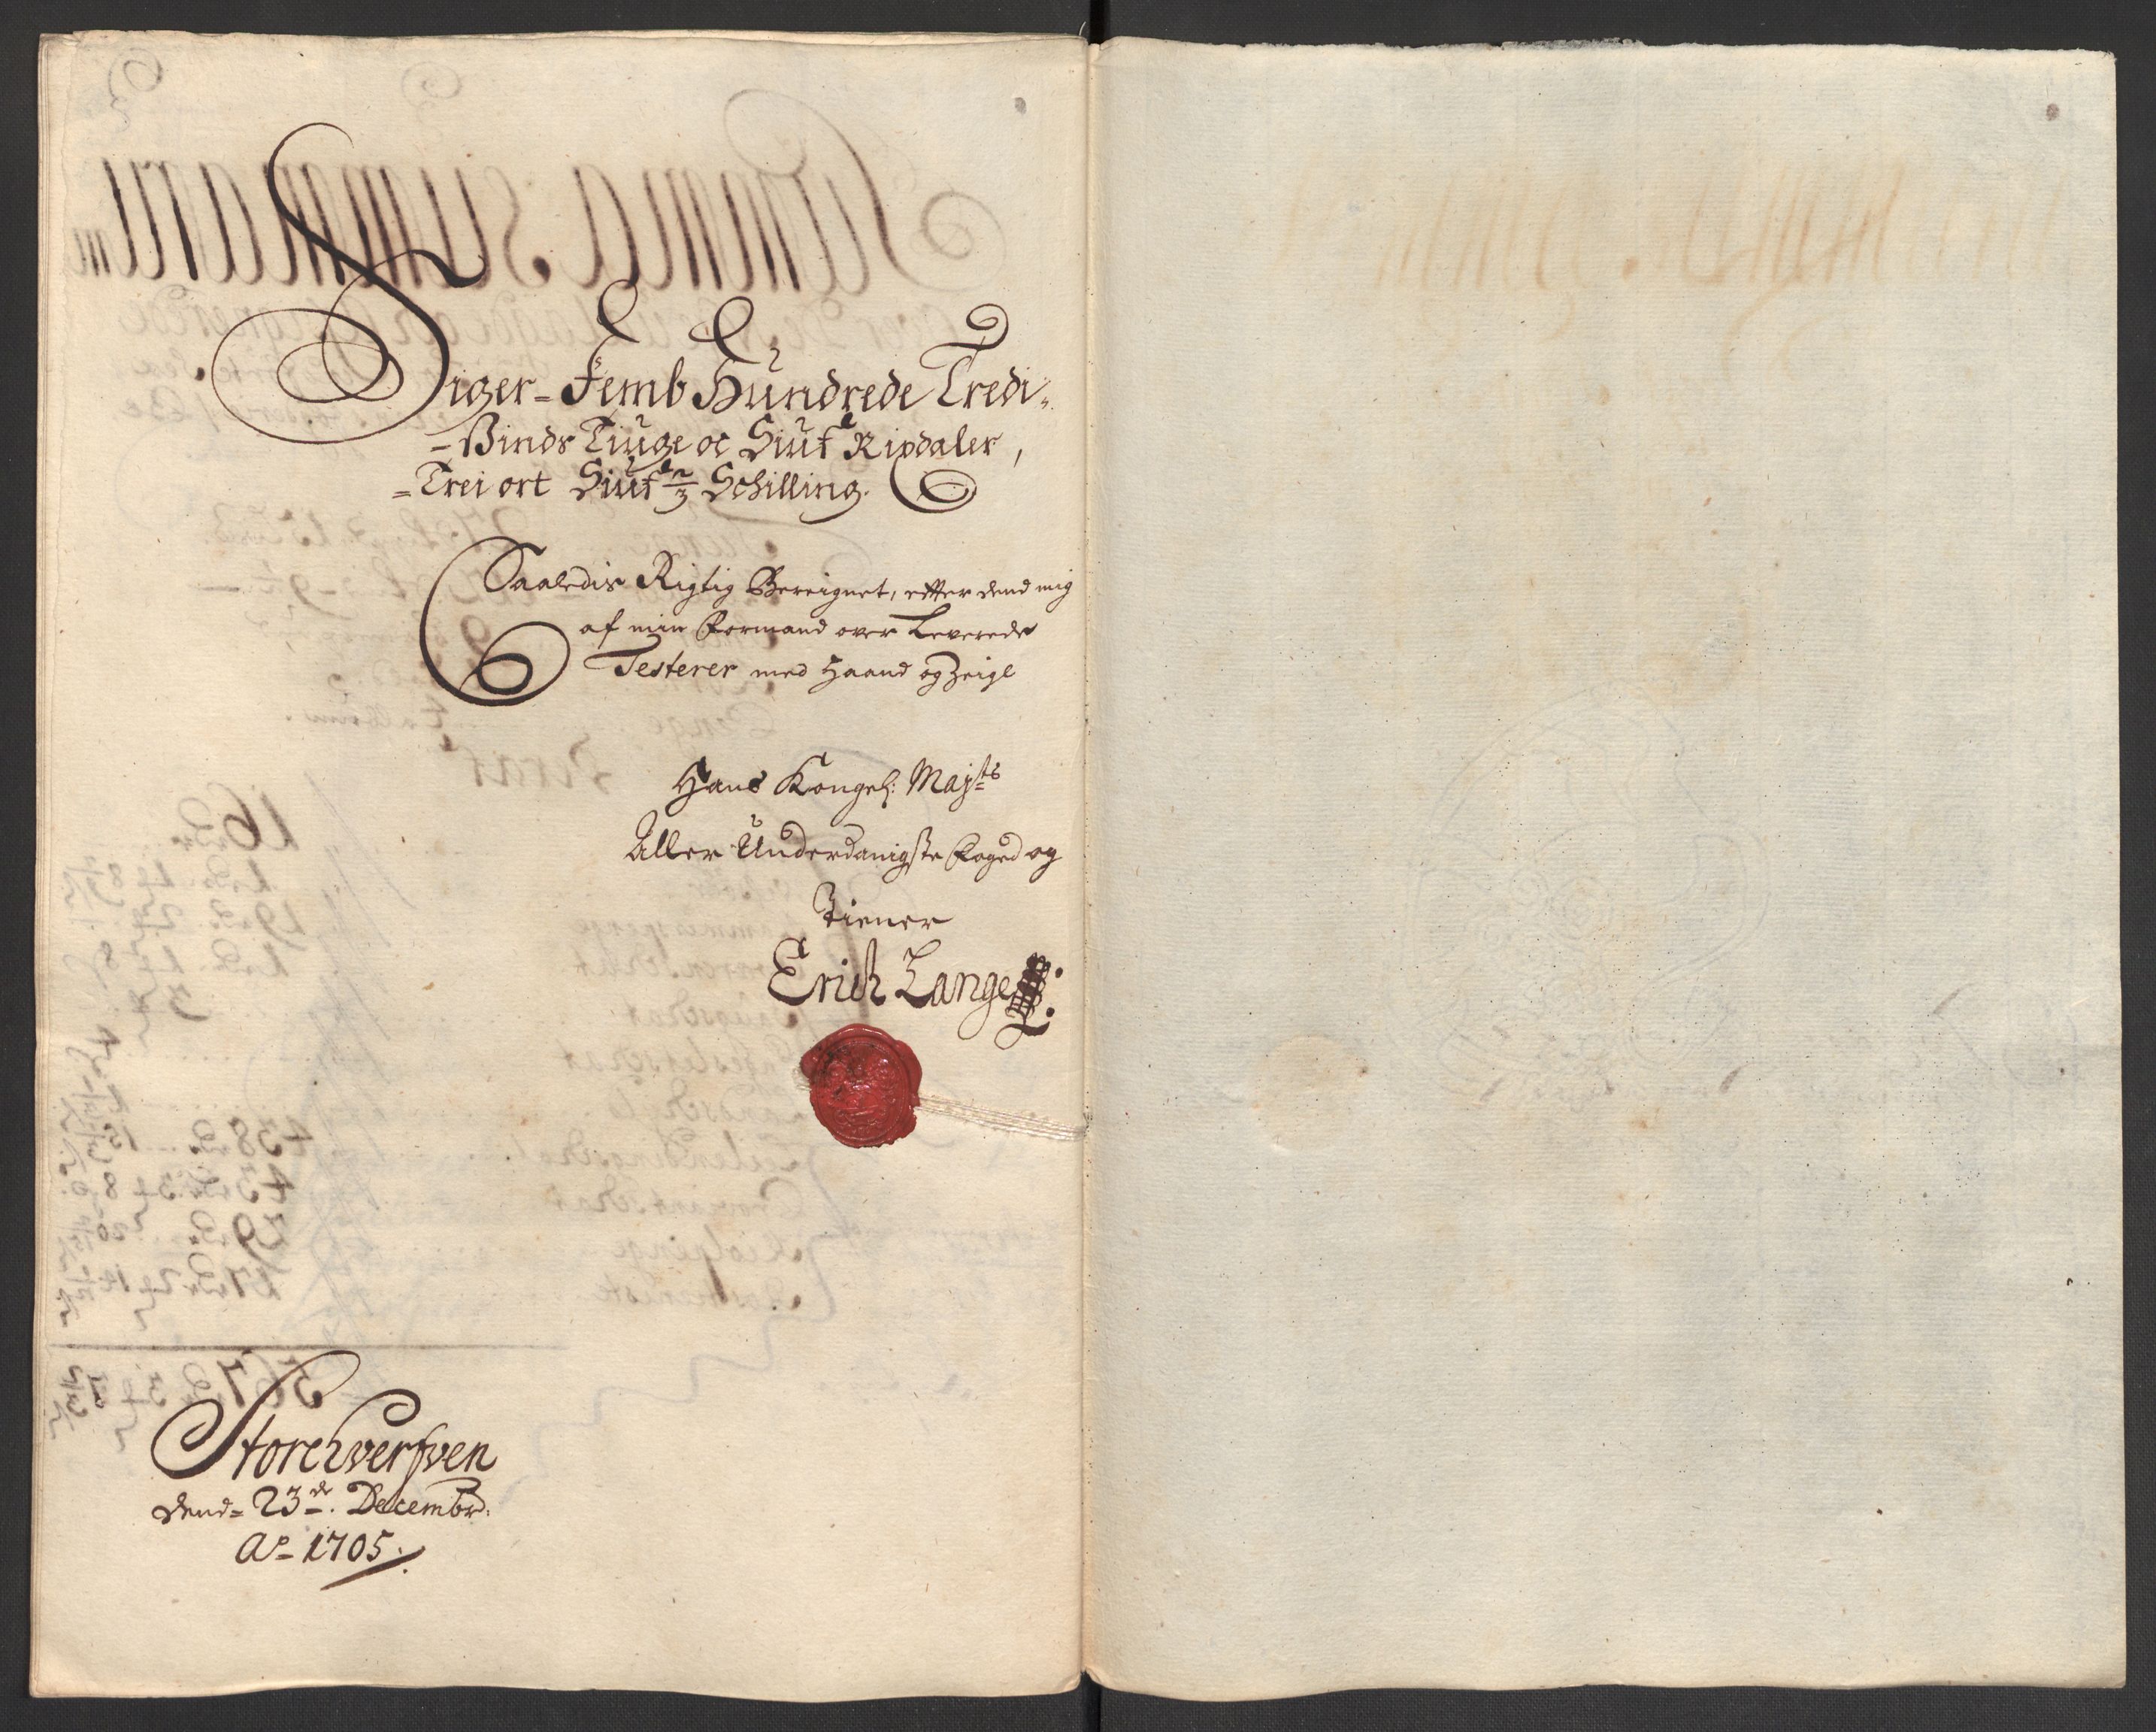 Siger- Femb Hundrede Tredi-
-Sinds Tiuge oc Siuf Rixdaler,
-Trei ort Siuf 2/3 Schilling.
Saaledis Rigtig Bereignet, efter dend mig
af min Formand over Leverede
Testerer med Haand og Zeigl
Hans Kongel: Mayts
Aller Underdanigste Foged og
Tiener
Erich Lange
Storchverfven
dend= 23de. Decembr:
Ao- 1705.